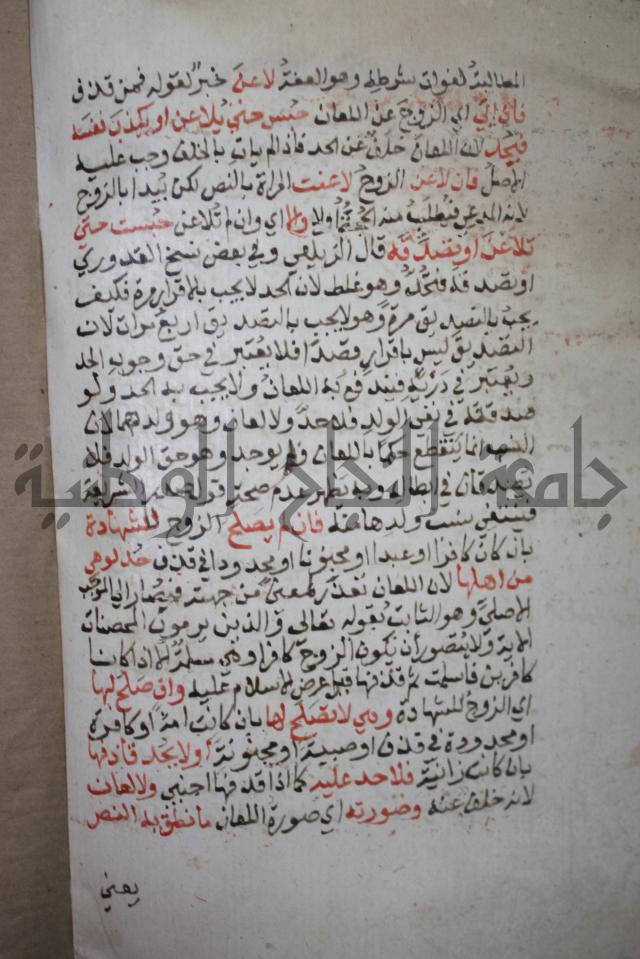 المطالبة لفوات شرطه وهو العفة لاعن خبر لقوله فمن قذف
فان ابى اي الزوج عن اللعان حبس حتى يلاعن او يكذب نفسه
فيحد لان اللعان خلف عن الحد فاذا لم يات بالخلف وجب عليه
الاصل فان لاعن الزوج لاعنت المراة بالنص لكن يبدا بالزوج
لانه المدعي فيطلب منه الحجة اولا والا اي وان لم تلاعن حبست حتى
تلاعن او تصدقه قال الزيلعي وفي بعض نسخ القدوري
او تصدقه فتحد وهو غلط لان الحد لا يجب بالاقرار مرة فكيف
يجب بالتصديق مرة وهو لا يجب بالتصديق اربع مرات لان
التصديق ليس باقرار قصدا فلا يعتبر في حق وجوب الحد
ويعتبر في درئه فيندفع به اللعان ولا يجب به الحد ولو
صدقته في نفي الولد فلا حد ولا لعان وهو ولدهما لان
النسب انما ينقطع حكما باللعان ولم يوجد وهو حق الولد فلا
يصدقان في ابطاله وبه يظهر عدم صحة قول صدر الشريعة
فينتفي نسب ولدها منه فان لم يصلح الزوج للشهادة
بان كان كافرا او عبدا او مجنونا او محدودا في قذف حد لو هي
من اهلها لان اللعان تعذر لمعنى من جهته فيصار الى الموجب
الاصلي وهو الثابت بقوله تعالى والذين يرمون المحصنات
الاية ولا يتصور ان يكون الزوج كافرا وهي مسلمة الا اذا كانا
كافرين فاسلمت ثم قذفها قبل عرض الاسلام عليه وان صلح لها
اي الزوج للشهادة وهي لا تصلح لها بان كانت امة او كافرة
او محدودة في قذف او صبية او مجنونة او لا يحد قاذفها
بان كانت زانية فلا حد عليه كما اذا قذفها اجنبي ولا لعان
لانه خلف عنه وصورته اي صورة اللعان ما نطق به النص
يعني
جامعة النجاح الوطنية